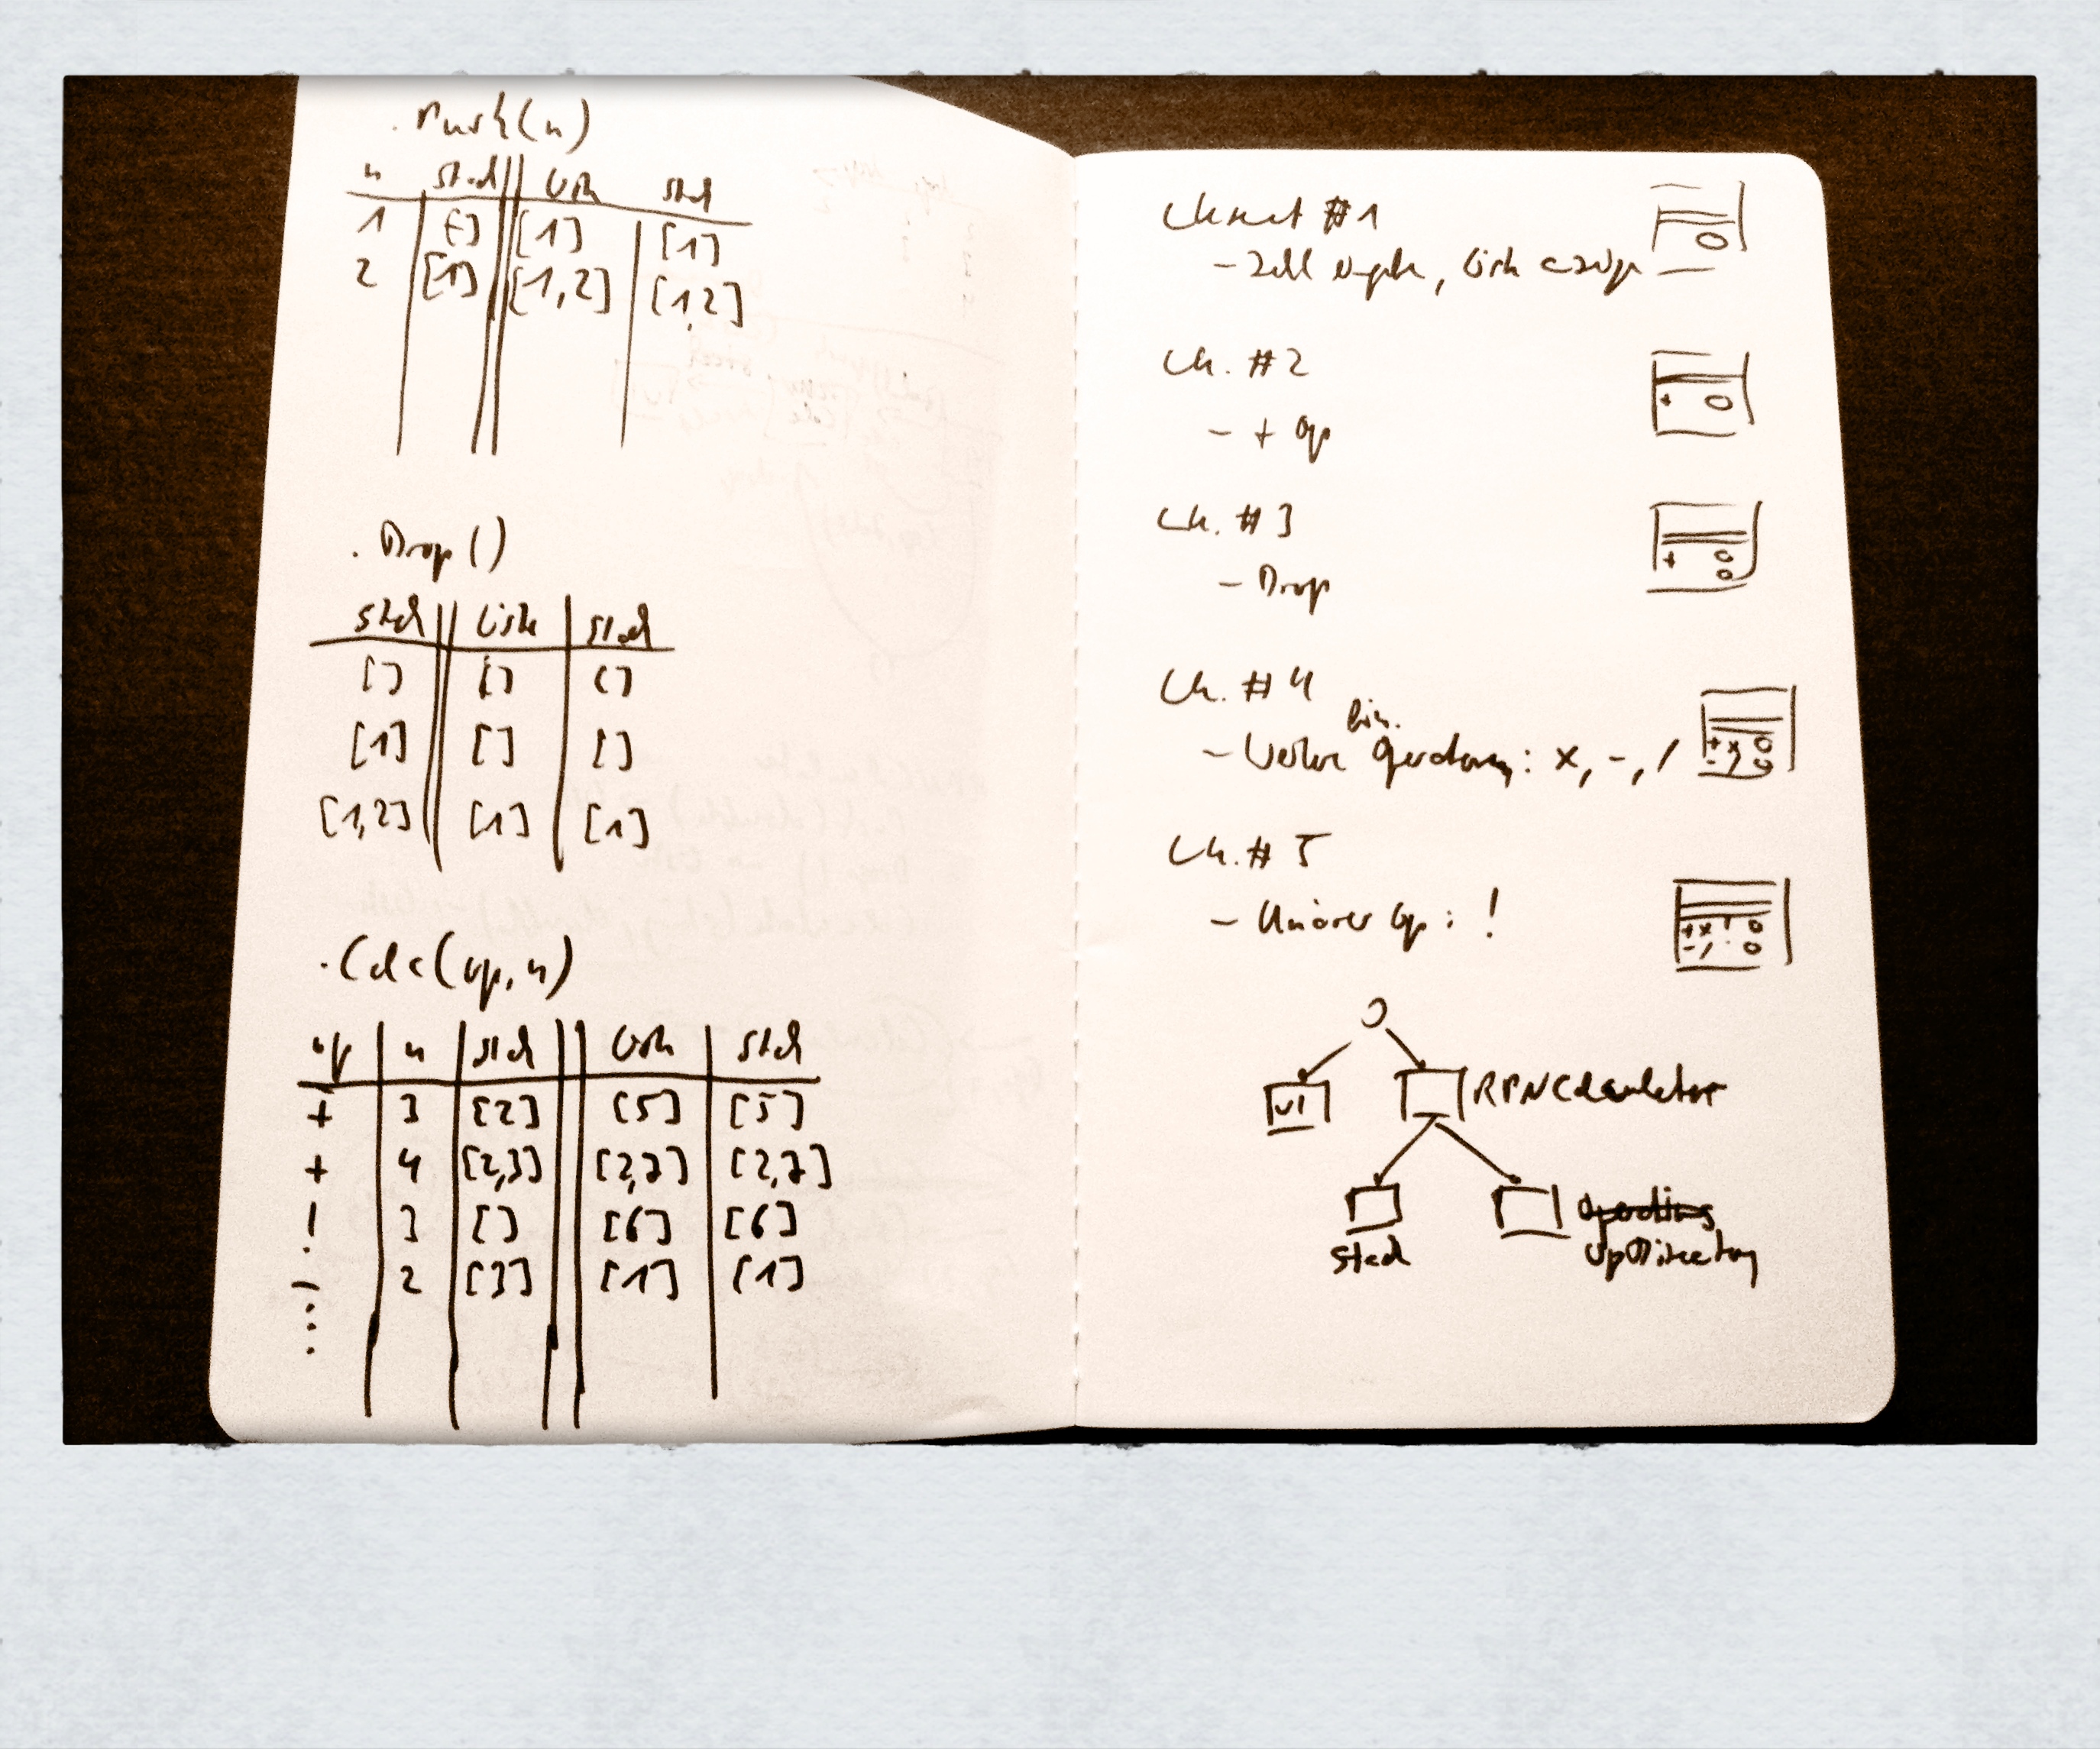 . Push(n)
n stack Liste stack
1 [] [1] [1]
2 [1] [1,2] [1,2]
. Drop()
stack Liste stack
[] [] []
[1] [] []
[1,2] [1] [1]
. Calc(op, n)
op n stack Liste stack
+ 3 [2] [5] [5]
+ 4 [2,3] [2,7] [2,7]
! 3 [] [6] [6]
- 2 [3] [1] [1]
...
#1
- Zahl eingeben, Liste anzeigen
Ch. #2
- + Op
Ch. #3
- Drop
Ch. #4
bin.
- Weitere Operationen: x, -, /
Ch. #5
- Unärer Op: !
UI
RPNCalculator
Stack
OpDirectory